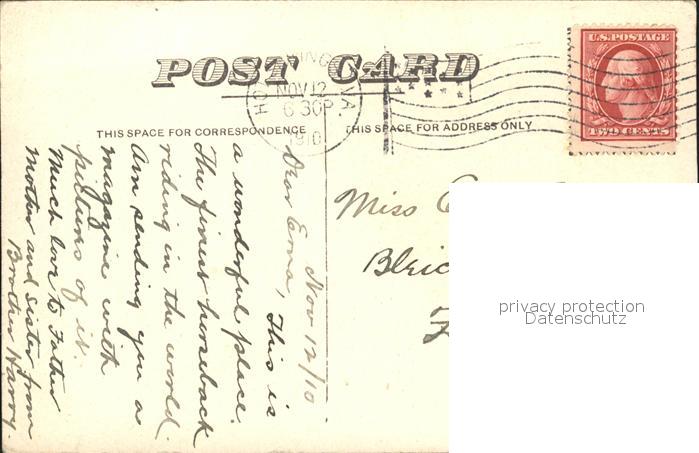 POST CARD
NOV 12
6 30P
1910
VA.
HO
U.S. POSTAGE
TWO CENTS
THIS SPACE FOR CORRESPONDENCE
THIS SPACE FOR ADDRESS ONLY
Nov 12/10
Dear Erna, This is
a wonderful place.
The finest horseback
riding in the world.
Am sending you a
magazine with
pictures of it.
Much love to Father
Mother and sister from
Brother Harry
Miss
privacy protection
Datenschutz